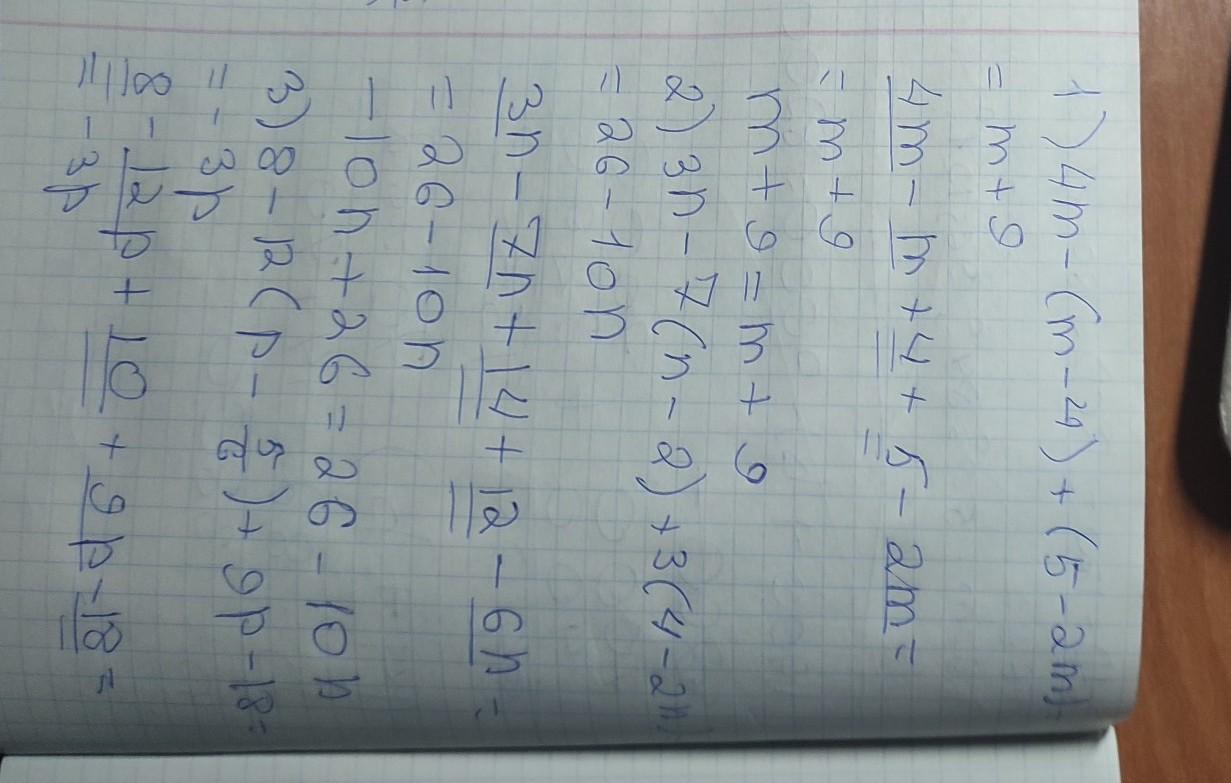 1) 4m - (m - 4) + (5 - 2m) =
= m + 9
4m - m + 4 + 5 - 2m =
= m + 9
m + 9 = m + 9
2) 3n - 7(n - 2) + 3(4 - 2n)
= 26 - 10n
3n - 7n + 14 + 12 - 6n =
= 26 - 10n
- 10n + 26 = 26 - 10n
3) 8 - 12(p - 5/6) + 9p - 18 =
= - 3p
8 - 12p + 10 + 9p - 18 =
= - 3p